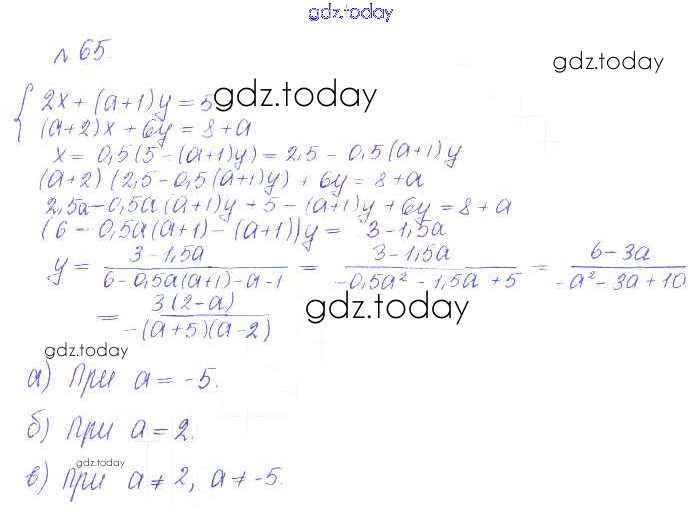 gdz.today
№65.
gdz.today
2x + (a+1)y = 5
gdz.today
(a+2)x + 6y = 8+a
x = 0,5(5 - (a+1)y) = 2,5 - 0,5(a+1)y
(a+2)(2,5 - 0,5(a+1)y) + 6y = 8+a
2,5a - 0,5a(a+1)y + 5 - (a+1)y + 6y = 8+a
(6 - 0,5a(a+1) - (a+1))y = 3-1,5a
y = (3-1,5a)/(6-0,5a(a+1)-a-1) = (3-1,5a)/(-0,5a²-1,5a+5) = (6-3a)/(-a²-3a+10)
= 3(2-a)/(-(a+5)(a-2))
gdz.today
gdz.today
а) При a = -5.
б) При a = 2.
gdz.today
в) При a ≠ 2, a ≠ -5.